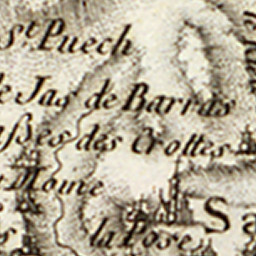 St. Puech
Jas de Barras
des Crottes
Moine
la Pose